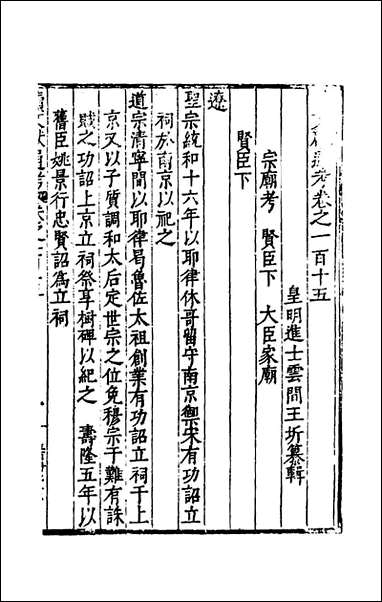 文獻通考卷之一百十五
皇明進士雲間王圻纂輯
宗廟考 賢臣下 大臣家廟
賢臣下
遼
聖宗統和十六年以耶律休哥留守南京禦宋有功詔立
祠於南京以祀之
道宗清寧間以耶律曷魯佐太祖創業有功詔立祠于上
京又以子質調和太后定世宗之位免穆宗于難有誅
賊之功詔上京立祠祭享樹碑以紀之 壽隆五年以
舊臣姚景行忠賢詔為立祠